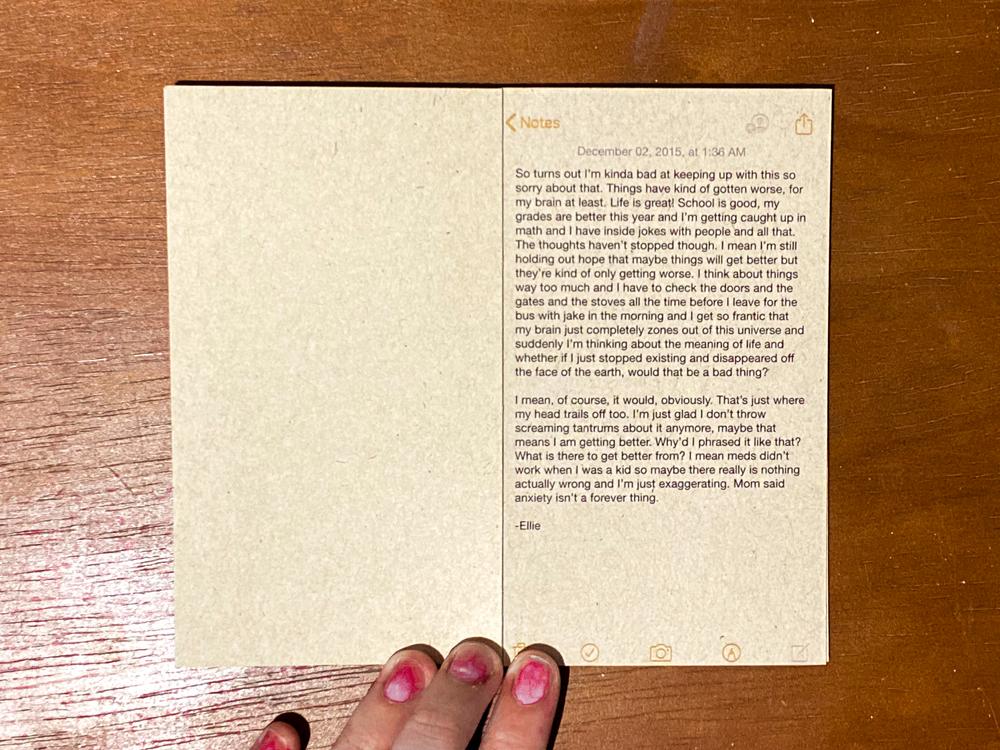 Notes
December 02, 2015, at 1:36 AM
So turns out I'm kinda bad at keeping up with this so
sorry about that. Things have kind of gotten worse, for
my brain at least. Life is great! School is good, my
grades are better this year and I'm getting caught up in
math and I have inside jokes with people and all that.
The thoughts haven't stopped though. I mean I'm still
holding out hope that maybe things will get better but
they're kind of only getting worse. I think about things
way too much and I have to check the doors and the
gates and the stoves all the time before I leave for the
bus with jake in the morning and I get so frantic that
my brain just completely zones out of this universe and
suddenly I'm thinking about the meaning of life and
whether if I just stopped existing and disappeared off
the face of the earth, would that be a bad thing?
I mean, of course, it would, obviously. That's just where
my head trails off too. I'm just glad I don't throw
screaming tantrums about it anymore, maybe that
means I am getting better. Why'd I phrased it like that?
What is there to get better from? I mean meds didn't
work when I was a kid so maybe there really is nothing
actually wrong and I'm just exaggerating. Mom said
anxiety isn't a forever thing.
-Ellie